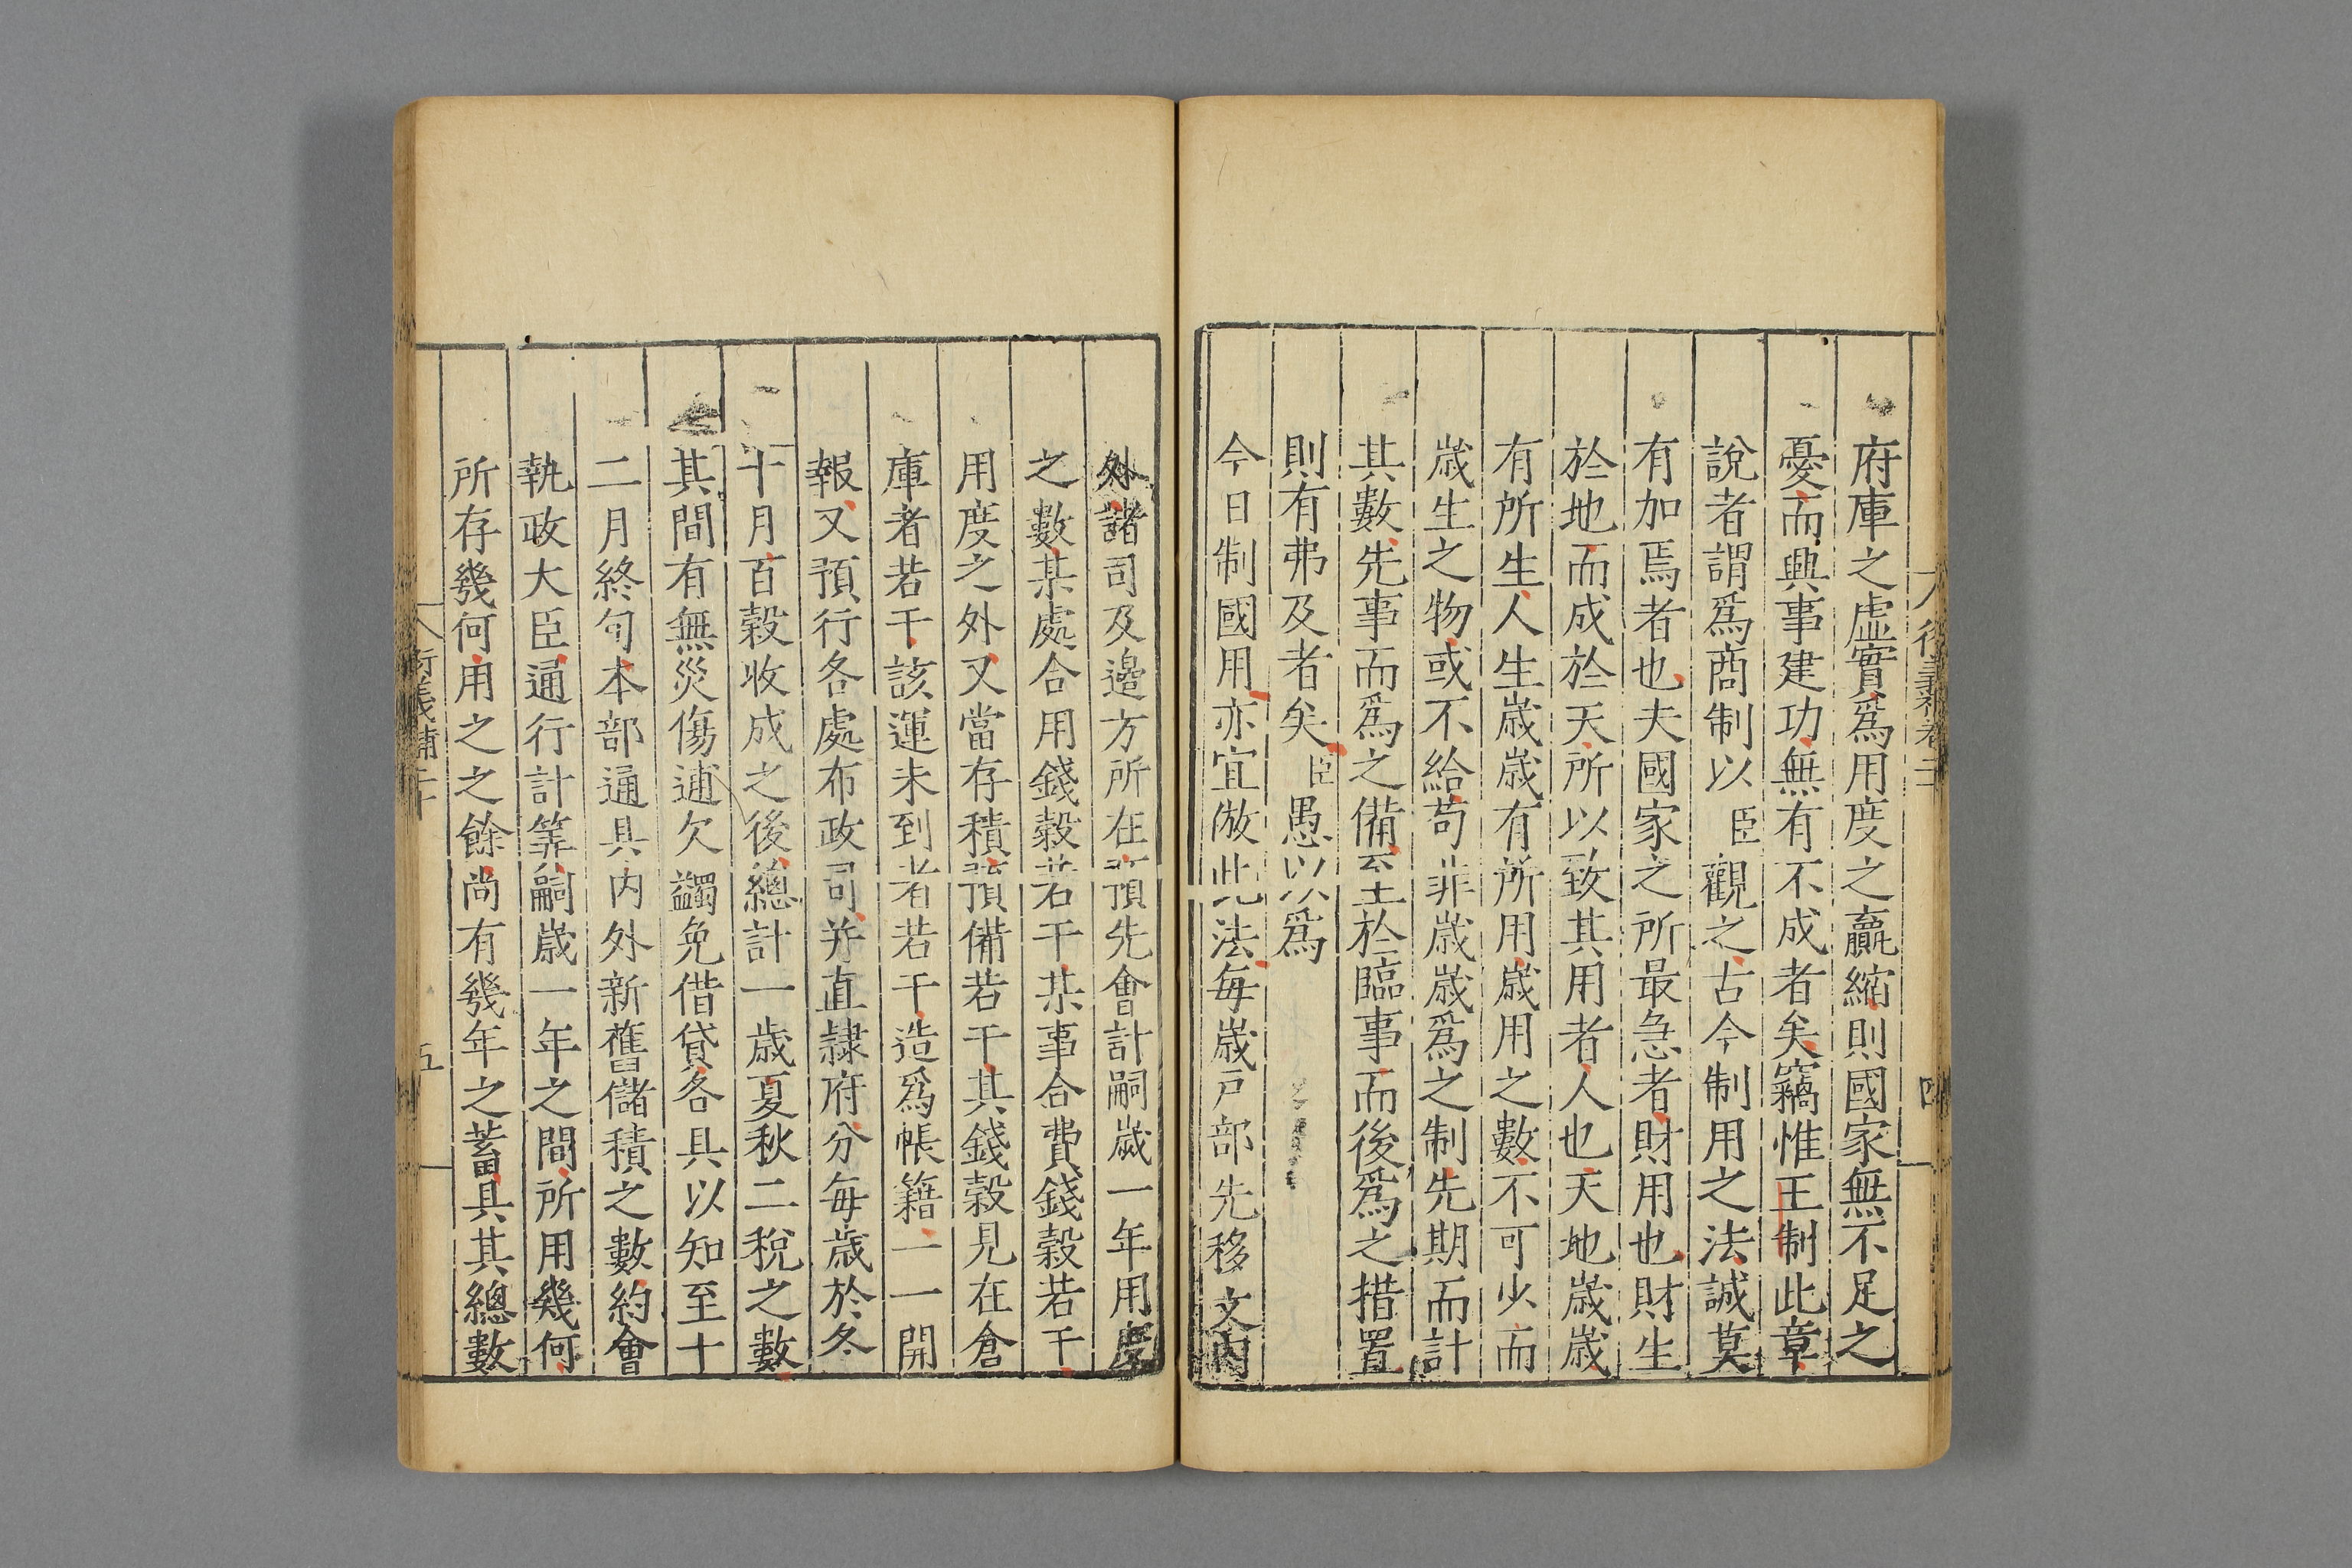 府庫之虛實爲用度之贏縮則國家無不足之
憂而興事建功無有不成者矣竊惟王制此章
說者謂爲商制以臣觀之古今制用之法誠莫
有加焉者也夫國家之所最急者財用也財生
於地而成於天所以致其用者人也天地歲歲
有所生人生歲歲有所用歲用之數不可少而
歲生之物或不給苟非歲歲爲之制先期而計
其數先事而爲之備至於臨事而後爲之措置
則有弗及者矣臣愚以爲
今日制國用亦宜倣此法每歲戶部先移文內
四
外諸司及邊方所在預先會計嗣歲一年用度
之數某處合用錢穀若干某事合費錢穀若干
用度之外又當存積預備若干其錢穀見在倉
庫者若干該運未到者若干造爲帳籍一一開
報又預行各處布政司并直隸府分每歲於冬
十月百穀收成之後總計一歲夏秋二稅之數
其間有無災傷逋欠蠲免借貸各具以知至十
二月終句本部通具內外新舊儲積之數約會
執政大臣通行計筭嗣歲一年之間所用幾何
所存幾何用之之餘尚有幾年之蓄具其總數
五